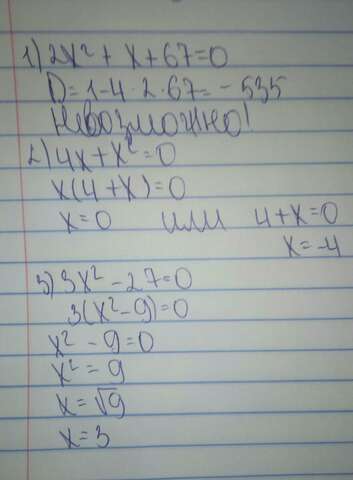 1) 2x² + x + 67 = 0
D = 1 - 4 · 2 · 67 = - 535
Невозможно!
2) 4x + x² = 0
x(4 + x) = 0
x = 0 или 4 + x = 0
x = -4
3) 3x² - 27 = 0
3(x² - 9) = 0
x² - 9 = 0
x² = 9
x = √9
x = 3